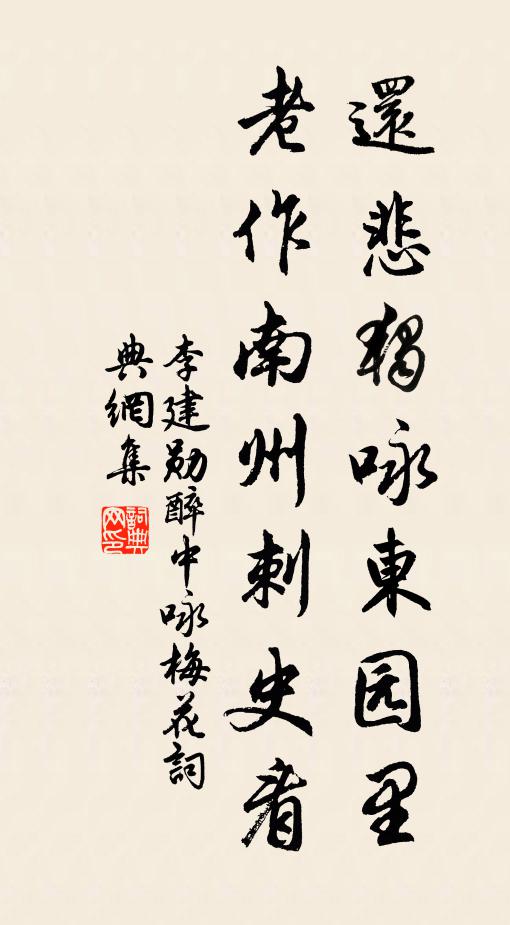 還悲獨咏東园里
老作南州刺史看
李建勛醉中咏梅花詞
典網集
詞典
网印